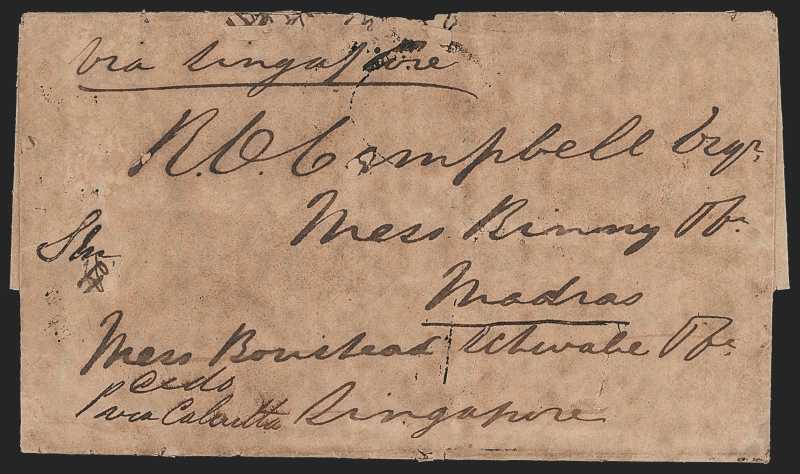 via Singapore
R.O. Campbell Esqr.
Mess Binny & Co.
Madras
Mess Boustead Schwabe & Co.
via Calcutta
Singapore